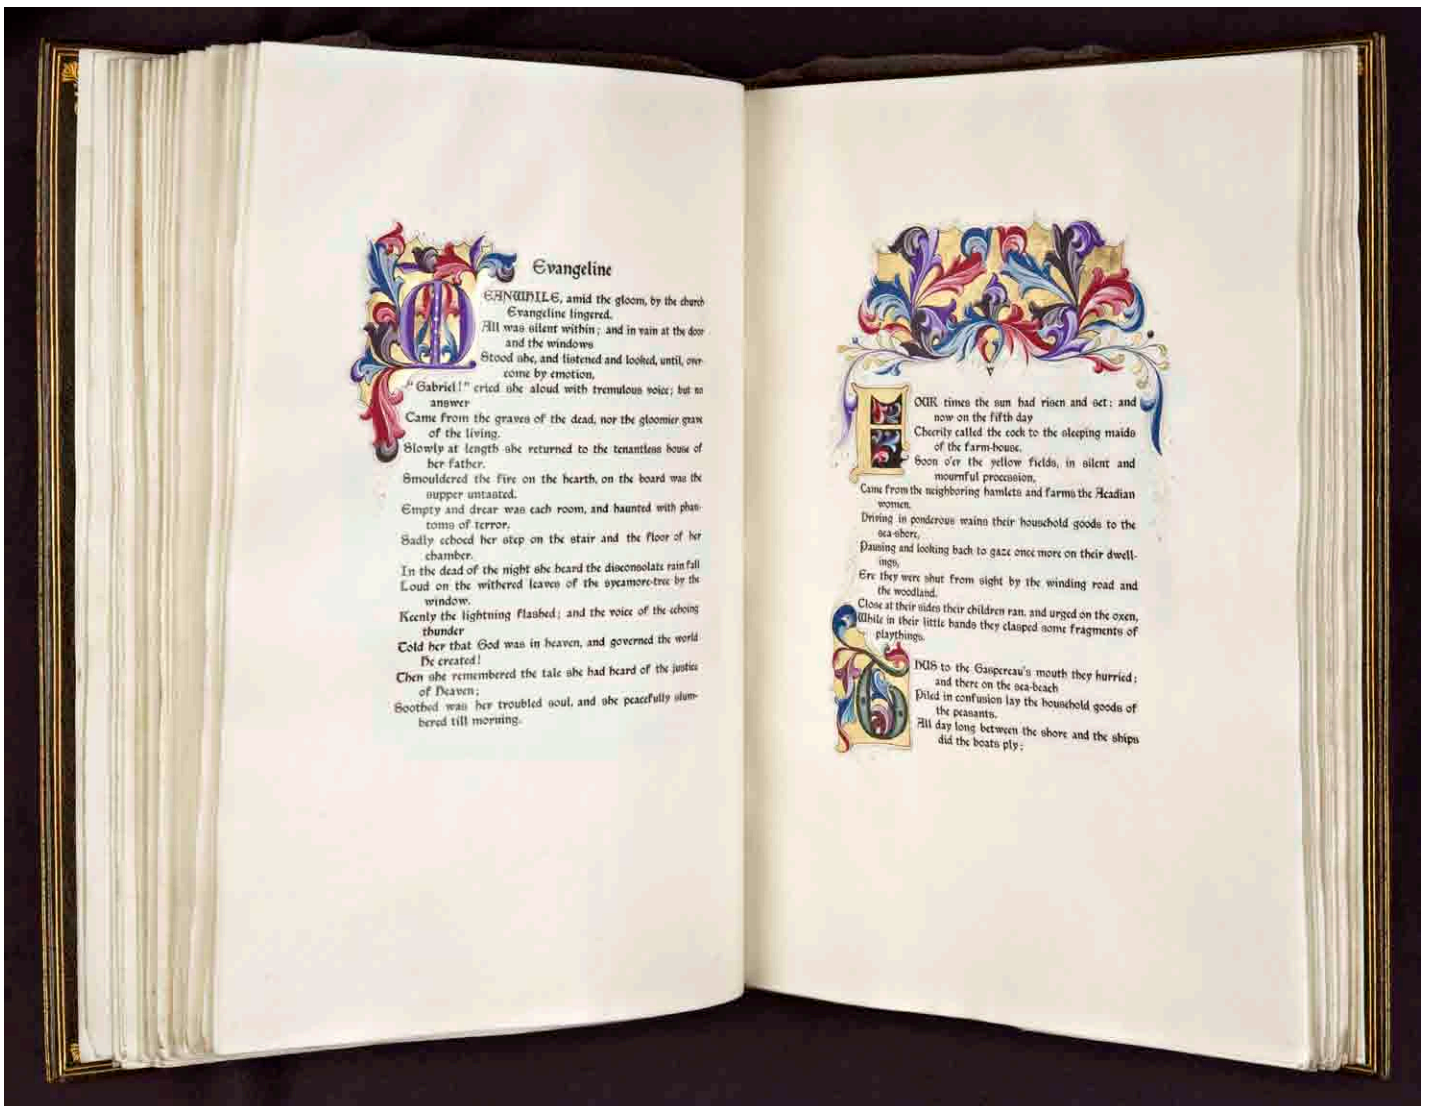 Evangeline
MEANWHILE, amid the gloom, by the church
Evangeline lingered.
All was silent within; and in vain at the door
and the windows
Stood she, and listened and looked, until, over-
come by emotion,
"Gabriel!" cried she aloud with tremulous voice; but no
answer
Came from the graves of the dead, nor the gloomier grave
of the living.
Slowly at length she returned to the tenantless house of
her father.
Smouldered the fire on the hearth, on the board was the
supper untasted.
Empty and drear was each room, and haunted with phan-
toms of terror.
Sadly echoed her step on the stair and the floor of her
chamber.
In the dead of the night she heard the disconsolate rain fall
Loud on the withered leaves of the sycamore-tree by the
window.
Keenly the lightning flashed; and the voice of the echoing
thunder
Told her that God was in heaven, and governed the world
He created!
Then she remembered the tale she had heard of the justice
of Heaven;
Soothed was her troubled soul, and she peacefully slum-
bered till morning.
FOUR times the sun had risen and set; and
now on the fifth day
Cheerily called the cock to the sleeping maids
of the farm-house.
Soon o'er the yellow fields, in silent and
mournful procession,
Came from the neighboring hamlets and farms the Acadian
women,
Driving in ponderous wains their household goods to the
sea-shore,
Pausing and looking back to gaze once more on their dwell-
ings,
Ere they were shut from sight by the winding road and
the woodland.
Close at their sides their children ran, and urged on the oxen,
While in their little hands they clasped some fragments of
playthings.
THUS to the Gaspereau's mouth they hurried;
and there on the sea-beach
Piled in confusion lay the household goods of
the peasants.
All day long between the shore and the ships
did the boats ply;